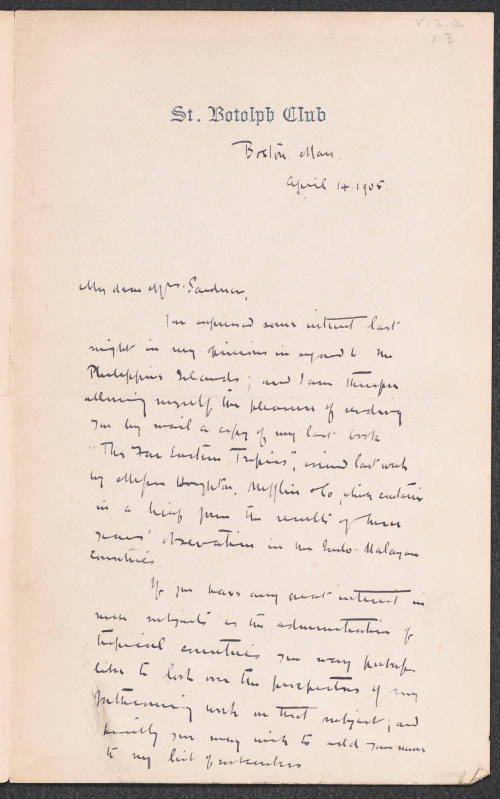 V. 2. a
1.3
St. Botolph Club
Boston Mass.
April 14. 1905.
My dear Mrs. Gardner,
You expressed some interest last
night in my opinions in regard to the
Philippine Islands; and I am therefore
allowing myself the pleasure of sending
you by mail a copy of my last book
"The Far Eastern Tropics", issued last week
by Messrs Houghton, Mifflin & Co, which contains
in a brief form the results of three
years' observation in the Indo-Malayan
countries.
If you have any great interest in
such subjects as the administration of
tropical countries you may perhaps
like to look over the prospectus of my
forthcoming work on that subject, and
possibly you may wish to add your name
to my list of subscribers